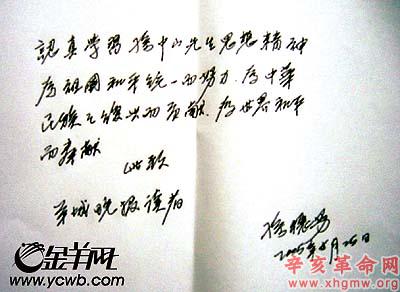 認真学習孫中山先生思想精神
為祖國和平統一而努力.為中華
民族之復興而貢献.為世界和平
而奉献
此致
羊城晚报读者
孫穗芳
2005年 月25日
金羊网
www.ycwb.com
辛亥革命网
www.xhgmw.org